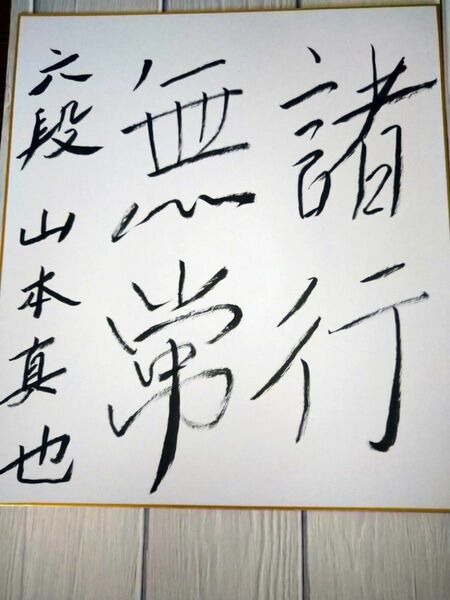 諸行
無常
六段 山本真也